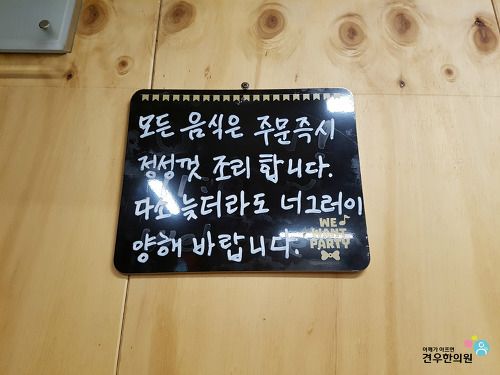 모든 음식은 주문즉시
정성껏 조리 합니다.
다소 늦더라도 너그러이
양해 바랍니다.
WE
WANT
PARTY
어깨가 아프면
견우한의원